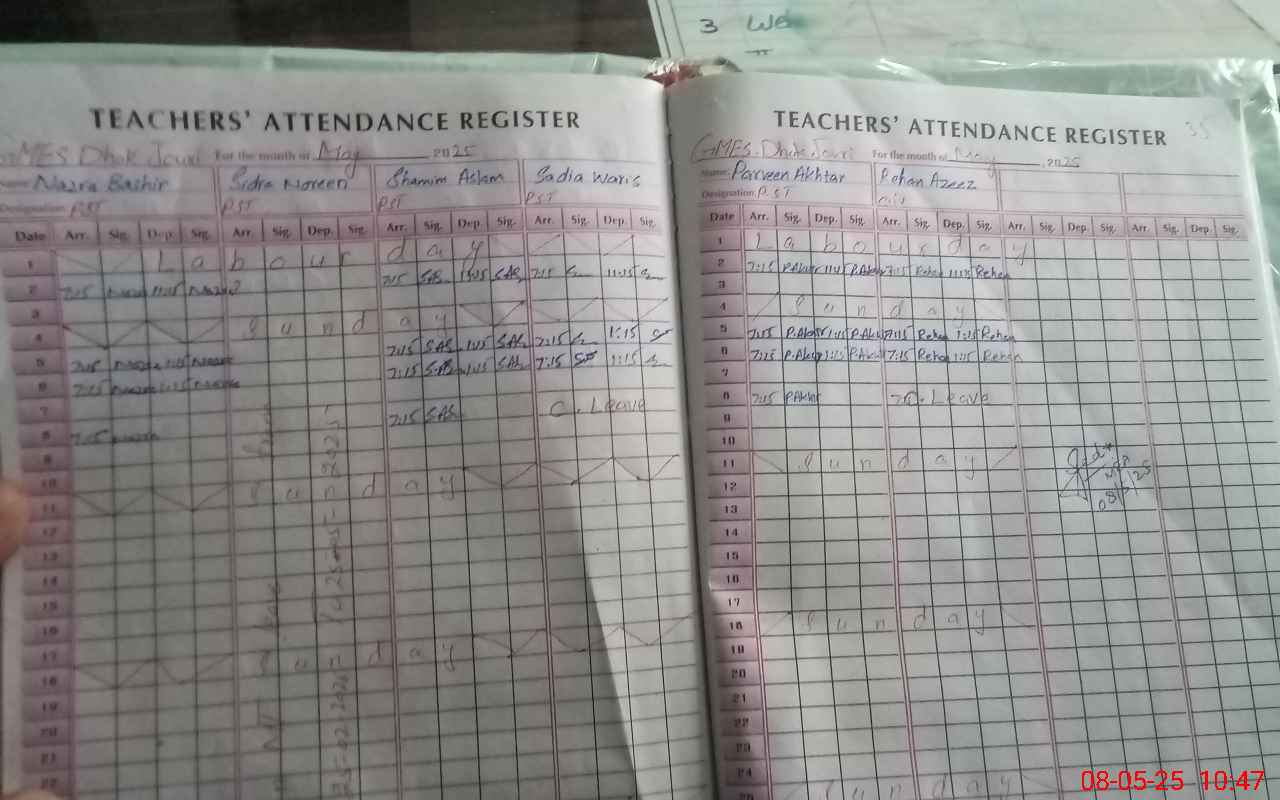 3 We
TEACHERS' ATTENDANCE REGISTER
GMES. Dhok Jouri For the month of May 2025
Name: Nazra Bashir Sidra Noreen Shamim Aslam Sadia Waris
Designation: PST PST PST PST
Date Arr. Sig. Dep. Sig. Arr. Sig. Dep. Sig. Arr. Sig. Dep. Sig. Arr. Sig. Dep. Sig.
1 Labour day
2 7:15 11:15 7:15 SAS 11:15 SAS 7:15 11:15
3
4 Sunday
5 7:15 1:15 7:15 SAS 1:15 SAS 7:15 1:15
6 7:15 1:15 7:15 SAS 1:15 SAS 7:15 1:15
7
8 7:15 7:15 SAS C. Leave
9
10
11 Sunday
12
13
14
15
16
17
18 Sunday
19
20
21
22
TEACHERS' ATTENDANCE REGISTER 35
GMES. Dhok Jouri For the month of May 2025
Name: Parveen Akhtar Rehan Azeez
Designation: P.ST
Date Arr. Sig. Dep. Sig. Arr. Sig. Dep. Sig. Arr. Sig. Dep. Sig. Arr. Sig. Dep. Sig.
1 Labour day
2 7:15 P.Akhtar 11:15 P.Akhtar 7:15 Rehan 11:15 Rehan
3
4 Sunday
5 7:15 P.Akhtar 1:15 P.Akhtar 7:15 Rehan 1:15 Rehan
6 7:15 P.Akhtar 1:15 P.Akhtar 7:15 Rehan 1:15 Rehan
7
8 7:15 P.Akhtar C. Leave
9
10
11 Sunday
12
13
14
15
16
17
18 Sunday
19
20
21
22
23
24
25 Sunday
08/5/25
08-05-25 10:47